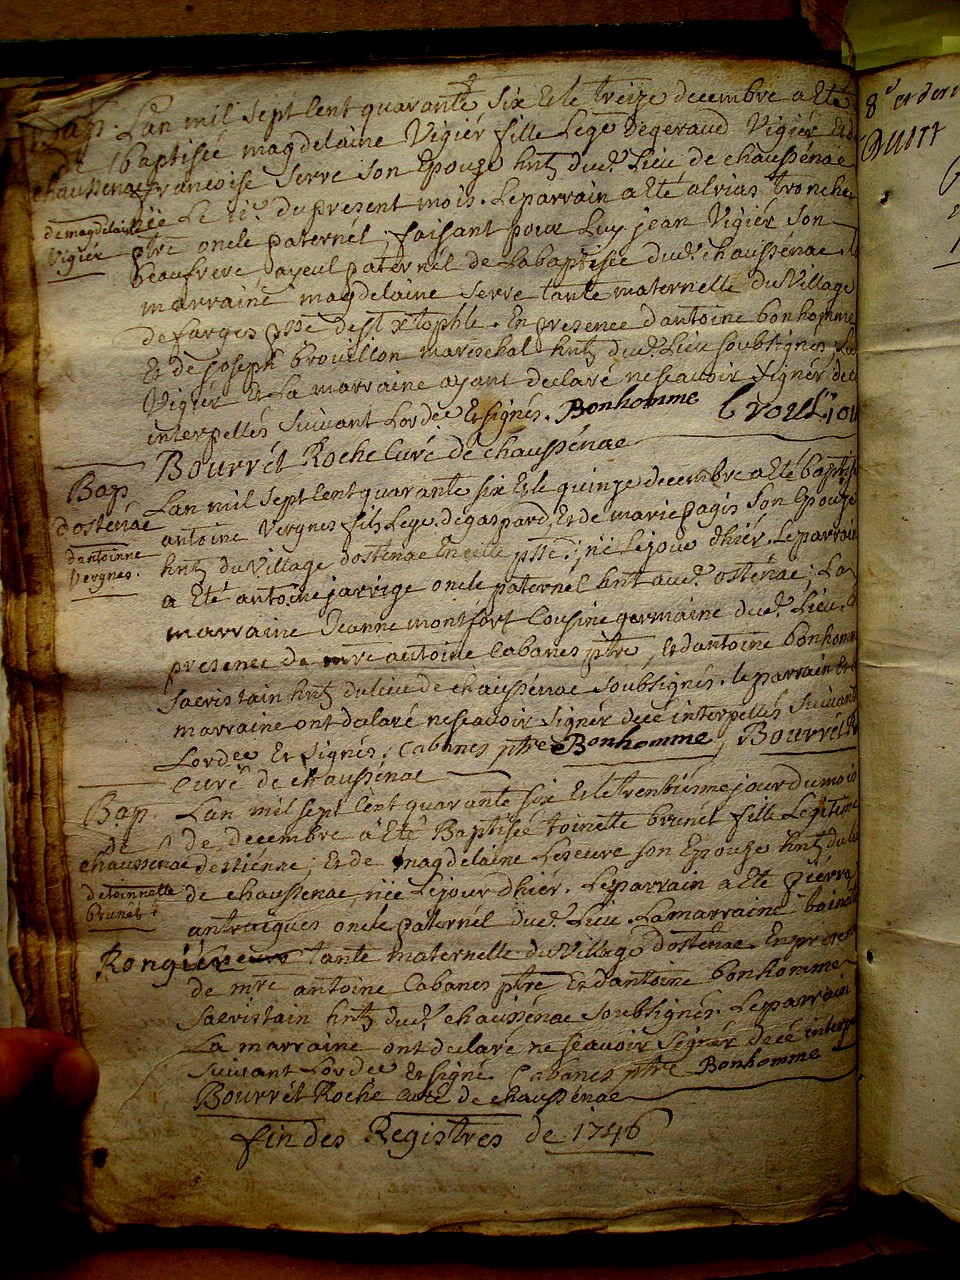 Bap. Lan mil sept Cent quarante six Et le treize decembre a Eté
de baptisée magdelaine Vigiér fille Lege degeraud Vigiér Et de
chaussenac francoise Serre Son Epouze hnt dud. Lieu de chaussénac
de magdelaine née Le du present mois. Le parrain a Eté
Vigiér ptre oncle paternél, faisant pour Luy jean Vigiér Son
beaufrere ayeul paternél de La baptisée dud. chaussénac
marraine magdelaine Serre tante maternelle du Village
de farges psse de St xtophle. En presence dantoine bonhomme
Et de joseph brouillon mareschal hnt dud. Lieu soubsignés,
Vigiér Et La marraine ayant declaré ne scavoir signér de ce
interpellés Suivant Lordce Et signés. Bonhomme
Bourrét Roche Curé de chaussénac
Bap Lan mil Sept Cent quarante six Et le quinze decembre a Eté baptisé
dosténac antoine Vergnes fils Lege. de gaspard, Et de marie pagis Son Epouze
dantoinne hnt du Village dostenac En cette psse; né Le jour dhiér. Le parrain
Vergnes. a Eté antoine jarrige oncle paternél hnt aud. osténac; La
marraine Jeanne montfort Cousine germaine dud. Lieu.
presence de mre antoine Cabanes ptre, Et dantoine bonhomme
Sacristain hnt du lieu de chaussénac soubsignés. le parrain Et
marraine ont declaré ne scavoir Signér de ce interpellés Suivant
Lordce Et Signés; Cabanes ptre Bonhomme, Bourrét
Curé de chaussenac
Bap. Lan mil Sept Cent quarante six Et le trentiesme jour du mois
de de decembre a Eté Baptisée toinette brunét fille Legitime
chaussénac destienne; Et de magdelaine Leseure son Epouze hnt du
de toinnette de chaussenac, née Le jour dhiér. Le parrain a Eté piérre
brunét antraigues oncle paternél dud. Lieu. La marraine toinette
Rongiér tante maternelle du Village dosténac. En presence
de mre antoine Cabanes ptre Et dantoine bonhomme
Sacristain hnt dud. chaussénac soubsignés. Le parrain
La marraine ont declaré ne scavoir Signér de ce
Suivant Lordce Et signé Cabanes ptre Bonhomme
Bourrét Roche curé de chaussénac
fin des Registres de 1746